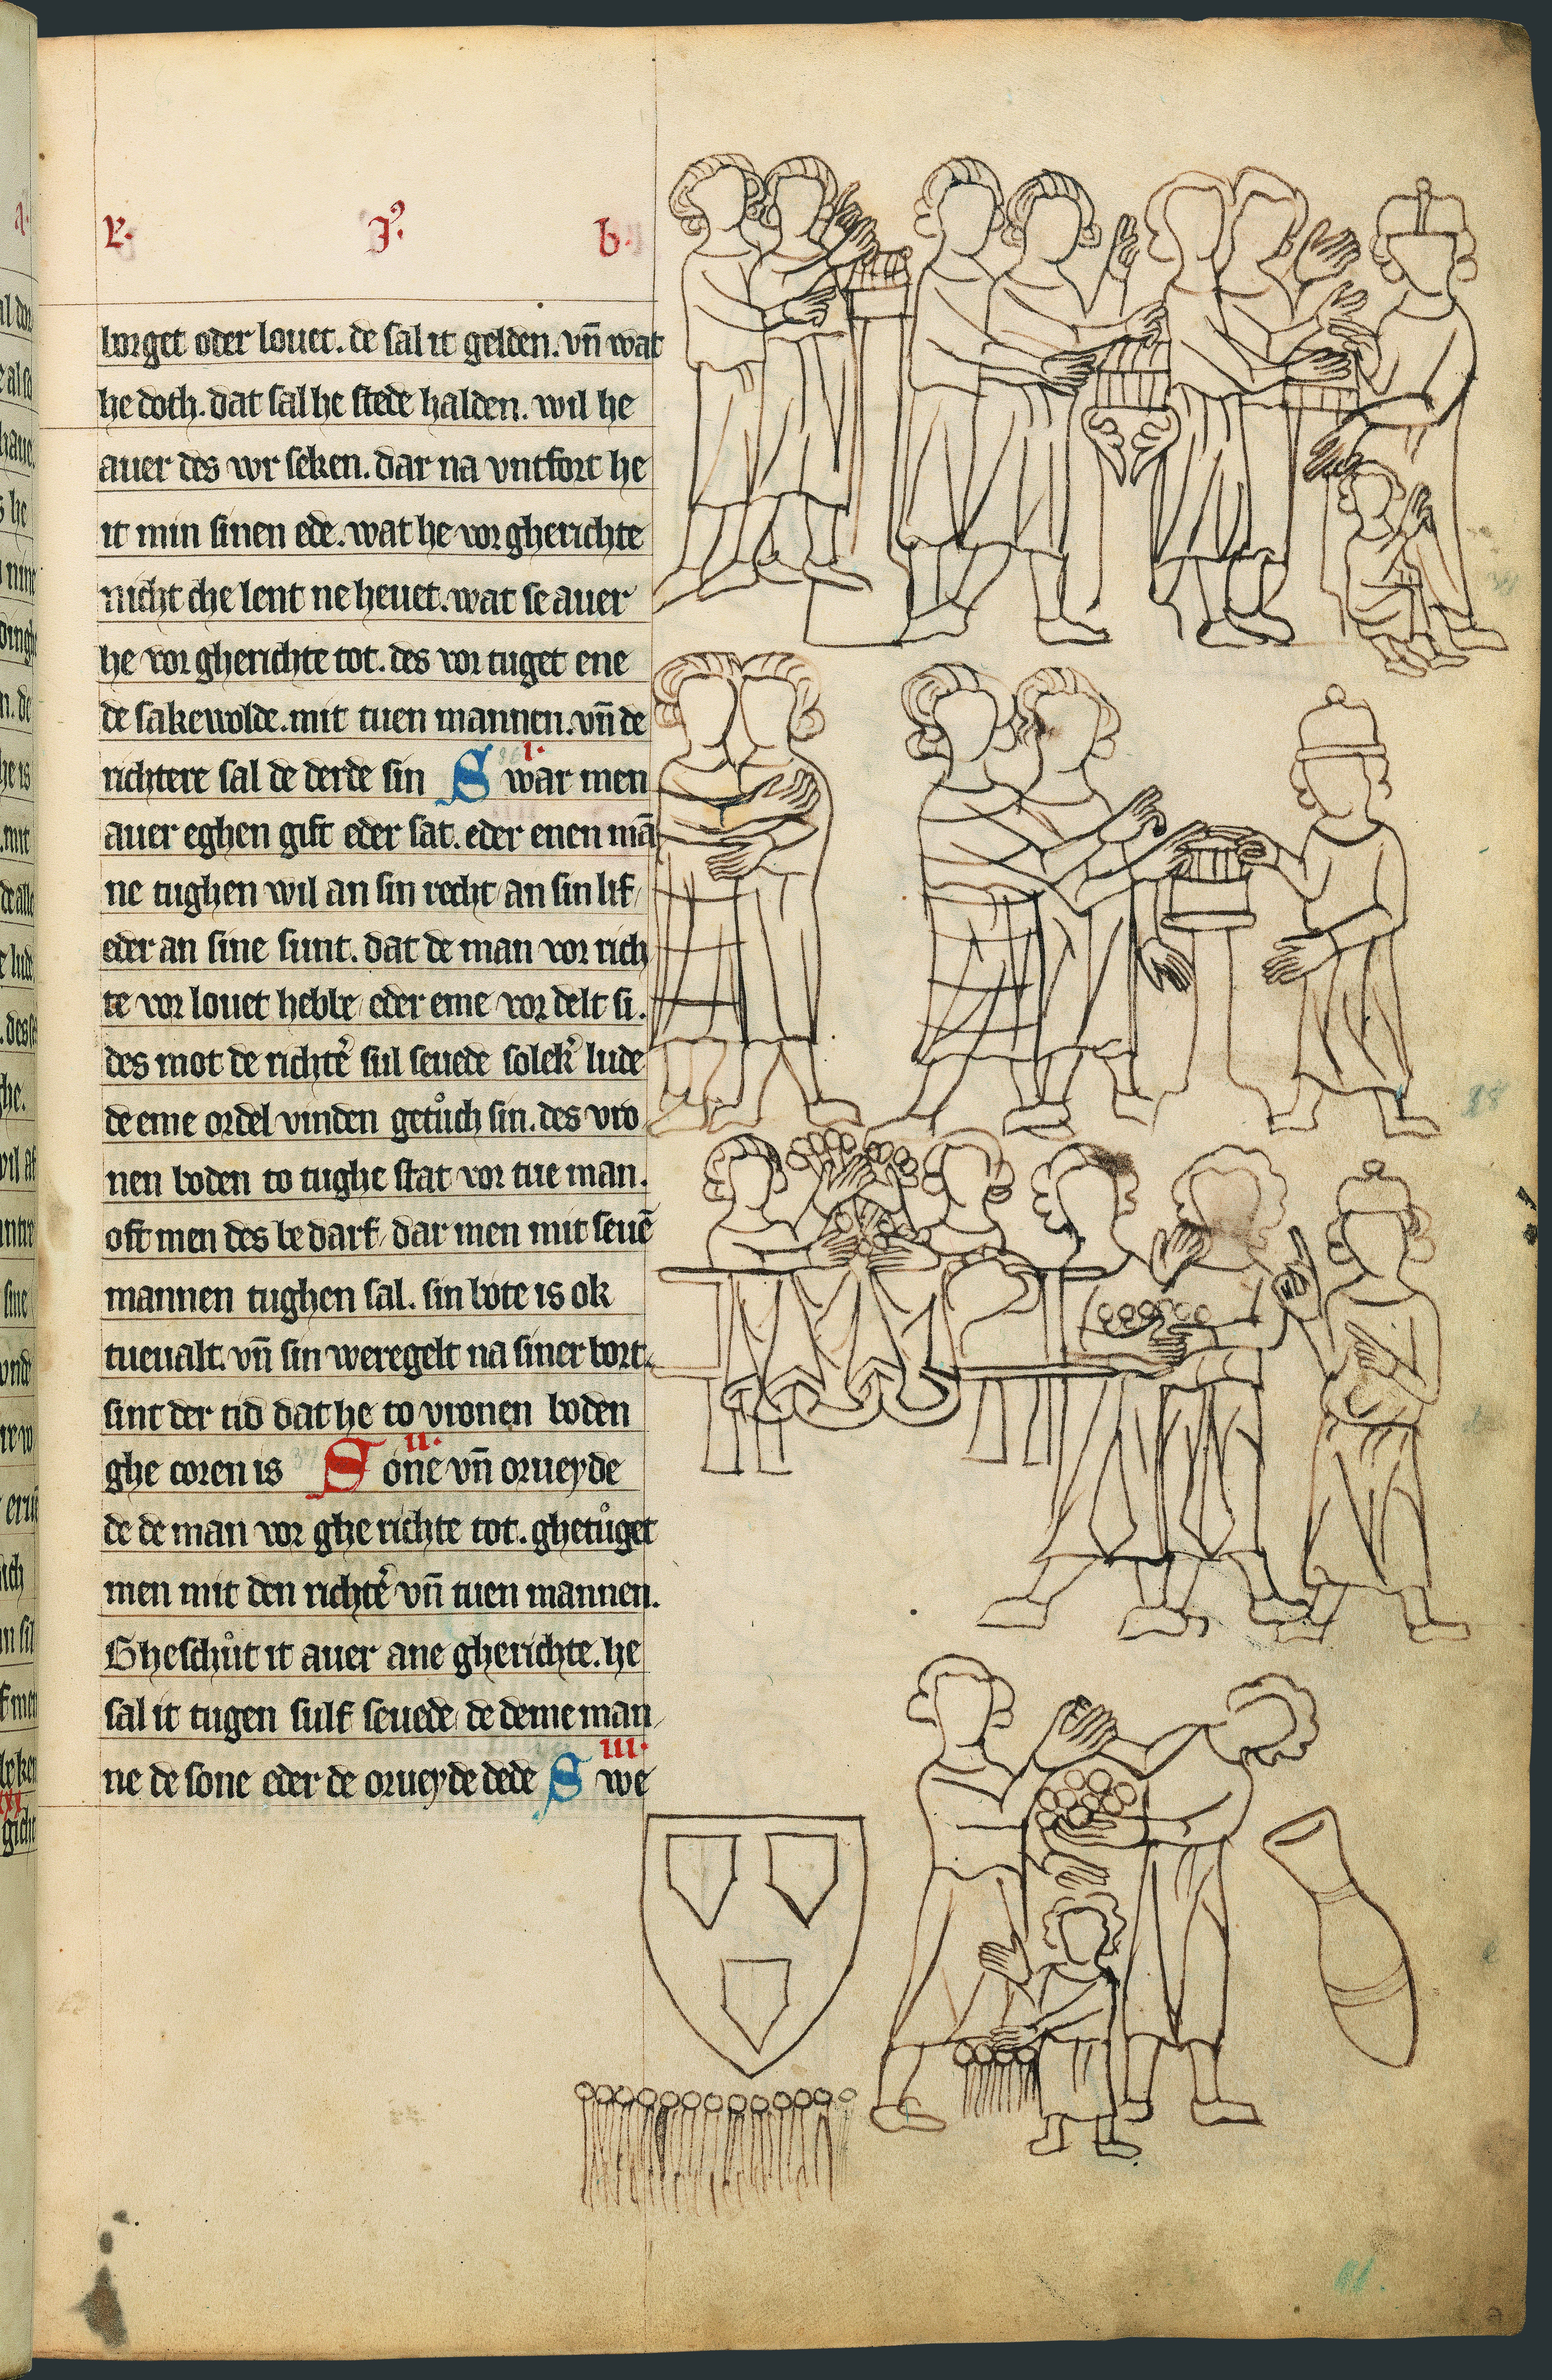 L. I. b.
borget oder louet. de sal it gelden. vñ wat
he doth. dat sal he stede halden. wil he
auer des vor seken. dar na vntfort he
it min sinen ede. wat he vor gherichte
nicht che lent ne heuet. wat se auer
he vor gherichte tot. des vor tuget ene
de sakewolde. mit tuen mannen. vñ de
richtere sal de derde sin
I.
Swar men
auer eghen gift eder sat. eder enen mā
ne tughen wil an sin recht/ an sin lif/
eder an sine sunt. dat de man vor rich
te vor louet hebbe/ eder eme vor delt si.
des mot de richtē sul seuede solek lude
de eme ordel vinden getůch sin. des vro
nen boden to tughe stat vor tue man.
oft men des be darf/ dar men mit seuē
mannen tughen sal. sin bote is ok
tueualt. vñ sin weregelt na siner bort.
sint der tid dat he to vronen boden
ghe coren is
II.
Sone vñ orueyde
de de man vor ghe richte tot. ghetůget
men mit den richtē vñ tuen mannen.
Gheschůt it auer ane gherichte. he
sal it tugen sulf seuede/ de deme man
ne de sone eder de orueyde dede
III.
Swe